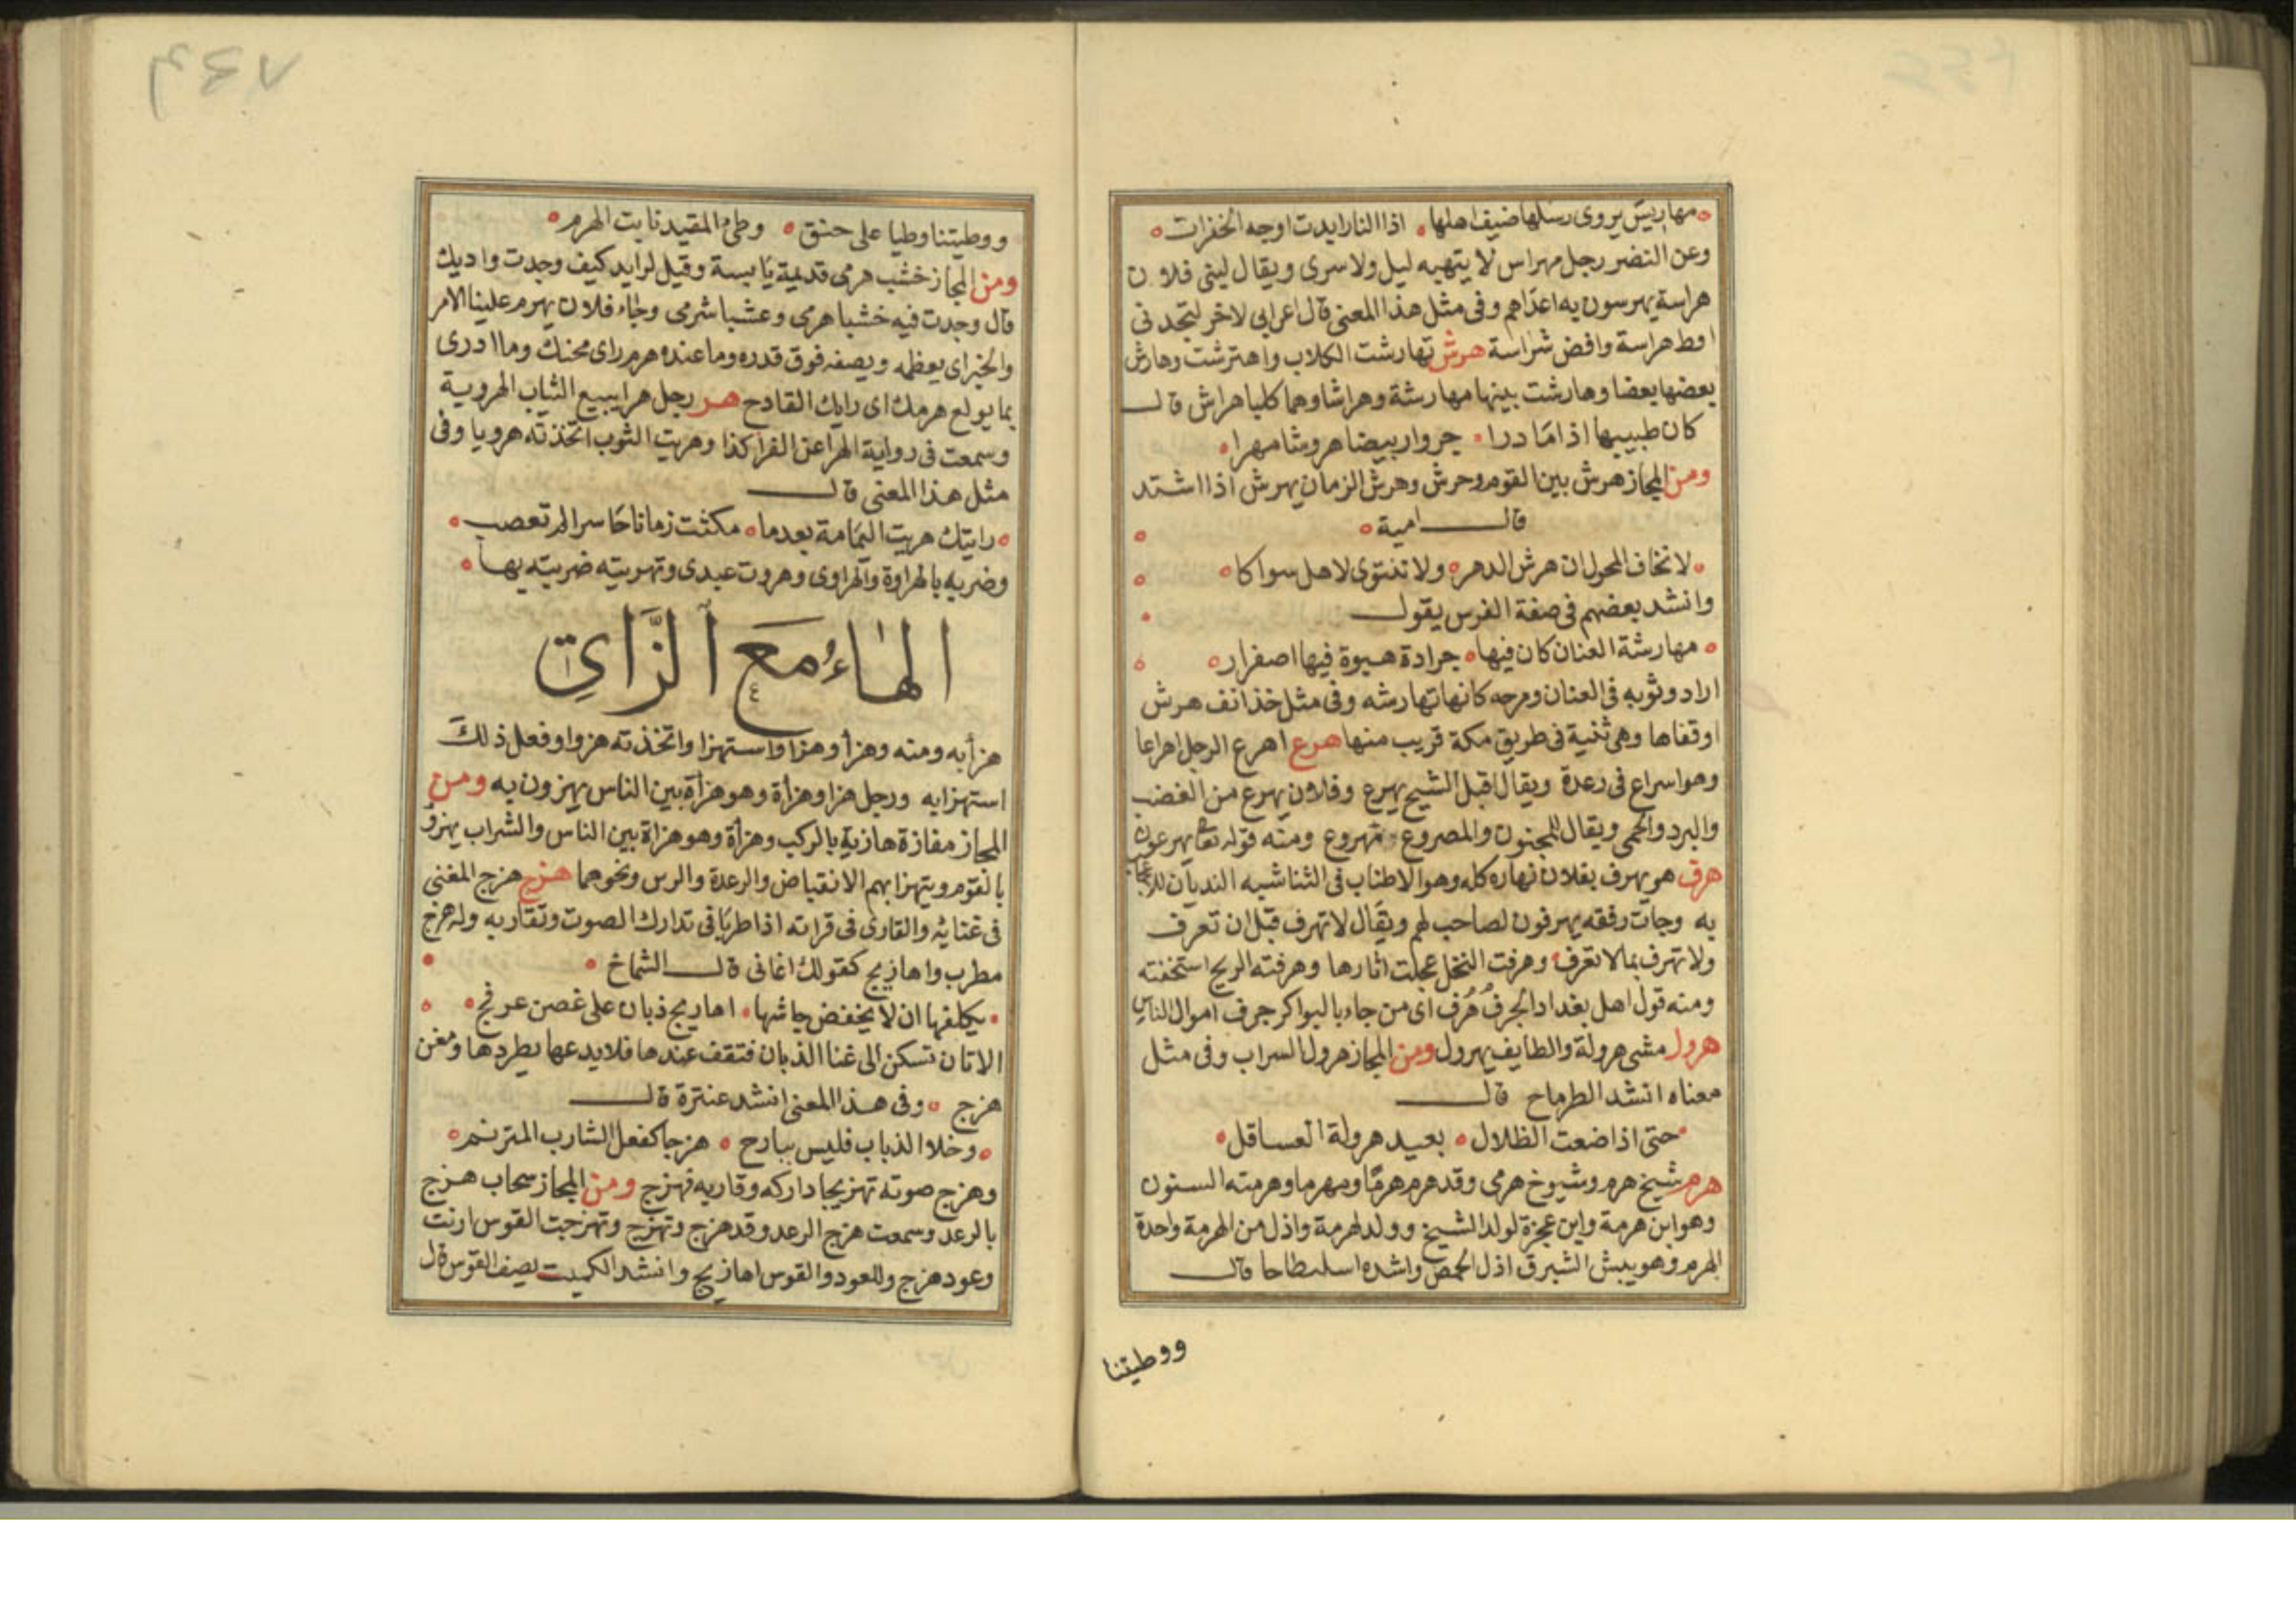 مهاريس يروى رسلها ضيف اهلها اذا النار ابدت اوجه الخفرات
وعن النضر رجل مهراس لا يتهيبه ليل ولا سرى ويقال ليتى فلان
هراسة يهرسون به اعداهم وفى مثل هذا المعنى قال اعرابى لاخر لتجدنى
اوط هراسة وافض شراسة هرش تهارشت الكلاب واهترشت وهارش
بعضها بعضا وهارشت بينها مهارشة وهراشا وهما كلبا هراش قال
كان طبييها اذا ما درا جروا ربيضا هروشا مهرا
ومن المجاز هرش بين القوم وحرش وهرش الزمان يهرش اذا اشتد
قال امية
لا نخاف المحول ان هرش الدهر ولا تنتوى لاهل سواكا
وانشد بعضهم فى صفة الفرس يقول
مهارشة العنان كان فيها جرادة هبوة فيها اصفرار
اراد وثوبه فى العنان ومرحه كانها تهارشه وفى مثل خذ انف هرش
اوقفاها وهى ثنية فى طريق مكة قريب منها هرع اهرع الرجل اهراعا
وهو اسراع فى رعدة ويقال اقبل الشيخ يهرع وفلان يهرع من الغضب
والبرد والحمى ويقال للمجنون والمصروع مهروع ومنه قوله تعا يهرعون
هرف هو يهرف بفلان نهاره كله وهو الاطناب فى الثنا شبه الهذيان للاعجاب
به وجات رفقه يهرفون لصاحب لهم ويقال لا تهرف قبل ان تعرف
ولا تهرف بما لا تعرف وهرفت النخل عجلت اثارها وهرفته الريح استخفته
ومنه قول اهل بغداد الجرف هرف اى من جاء بالبواكر جرف اموال الناس
هرول مشى هرولة والطايف يهرول ومن المجاز هرول السراب وفى مثل
معناه انشد الطرماح قال
حتى اذا ضعت الظلال بعيد هرولة العساقل
هرم شيخ هرم وشيوخ هرمى وقد هرم هرما ومهرما وهرمته السنون
وهو ابن هرمة وابن عجزة لولد الشيخ وولد لهرمة واذل من الهرمة واحدة
الهرم وهو يبش الشبرق اذل الحمض واشده اسلنطاحا قال
ووطيتنا
ووطيتنا وطيا على حنق وطئ المقيد نابت الهرم
ومن المجاز خشب هرمى قديمة يابسة وقيل لرايد كيف وجدت واديك
قال وجدت فيه خشبا هرمى وعشبا شرمى وجاء فلان يهرم علينا الامر
والخبر اى يعظمه ويصفه فوق قدره وما عنده هرم راى محنك وما ادرى
بما يولع هرمك اى رايك القادح هر رجل هرا يبيع الثياب الهروية
وسمعت فى رواية الهرا عن الفرا كذا وهريت الثوب اتخذته هرويا وفى
مثل هذا المعنى قال
رايتك هريت اليمامة بعدما مكثت زمانا حاسرا لم تعصب
وضربه بالهراوة والهراوى وهروت عبدى وتهريته ضربته بها
الهاء مع الزاي
هزأ به ومنه وهزأ وهزا واستهزا واتخذته هزوا وفعل ذلك
استهزابه ورجل هزا وهزأة وهو هزأة بين الناس يهزون به ومن
المجاز مفازة هازية بالركب وهزأة وهو هزاة بين الناس والشراب يهزو
بالقوم ويتهزا بهم الانقباض والرعدة والرس ونحوهما هزج هزج المغنى
فى غنايه والقارى فى قراته اذا طربا فى تدارك الصوت وتقاربه وله هزج
مطرب واهازيج كقولك اغانى قال الشماخ
يكلفها ان لا يخفض جاشها اهاريج ذبان على غصن عرفج
الاتان تسكن الى غنا الذبان فتقف عندها فلا يدعها يطردها ومغن
هزج وفى هذا المعنى انشد عنترة قال
وخلا الذباب فليس ببارح هزجا كفعل الشارب المترنم
وهزج صوته تهزيجا داركه وقاربه فهزج ومن المجاز سحاب هزج
بالرعد وسمعت هزج الرعد وقد هزج وتهزج وتهزجت القوس ارنت
وعود هزج وللعود والقوس اهازيج وانشد الكميت يصف القوس قال